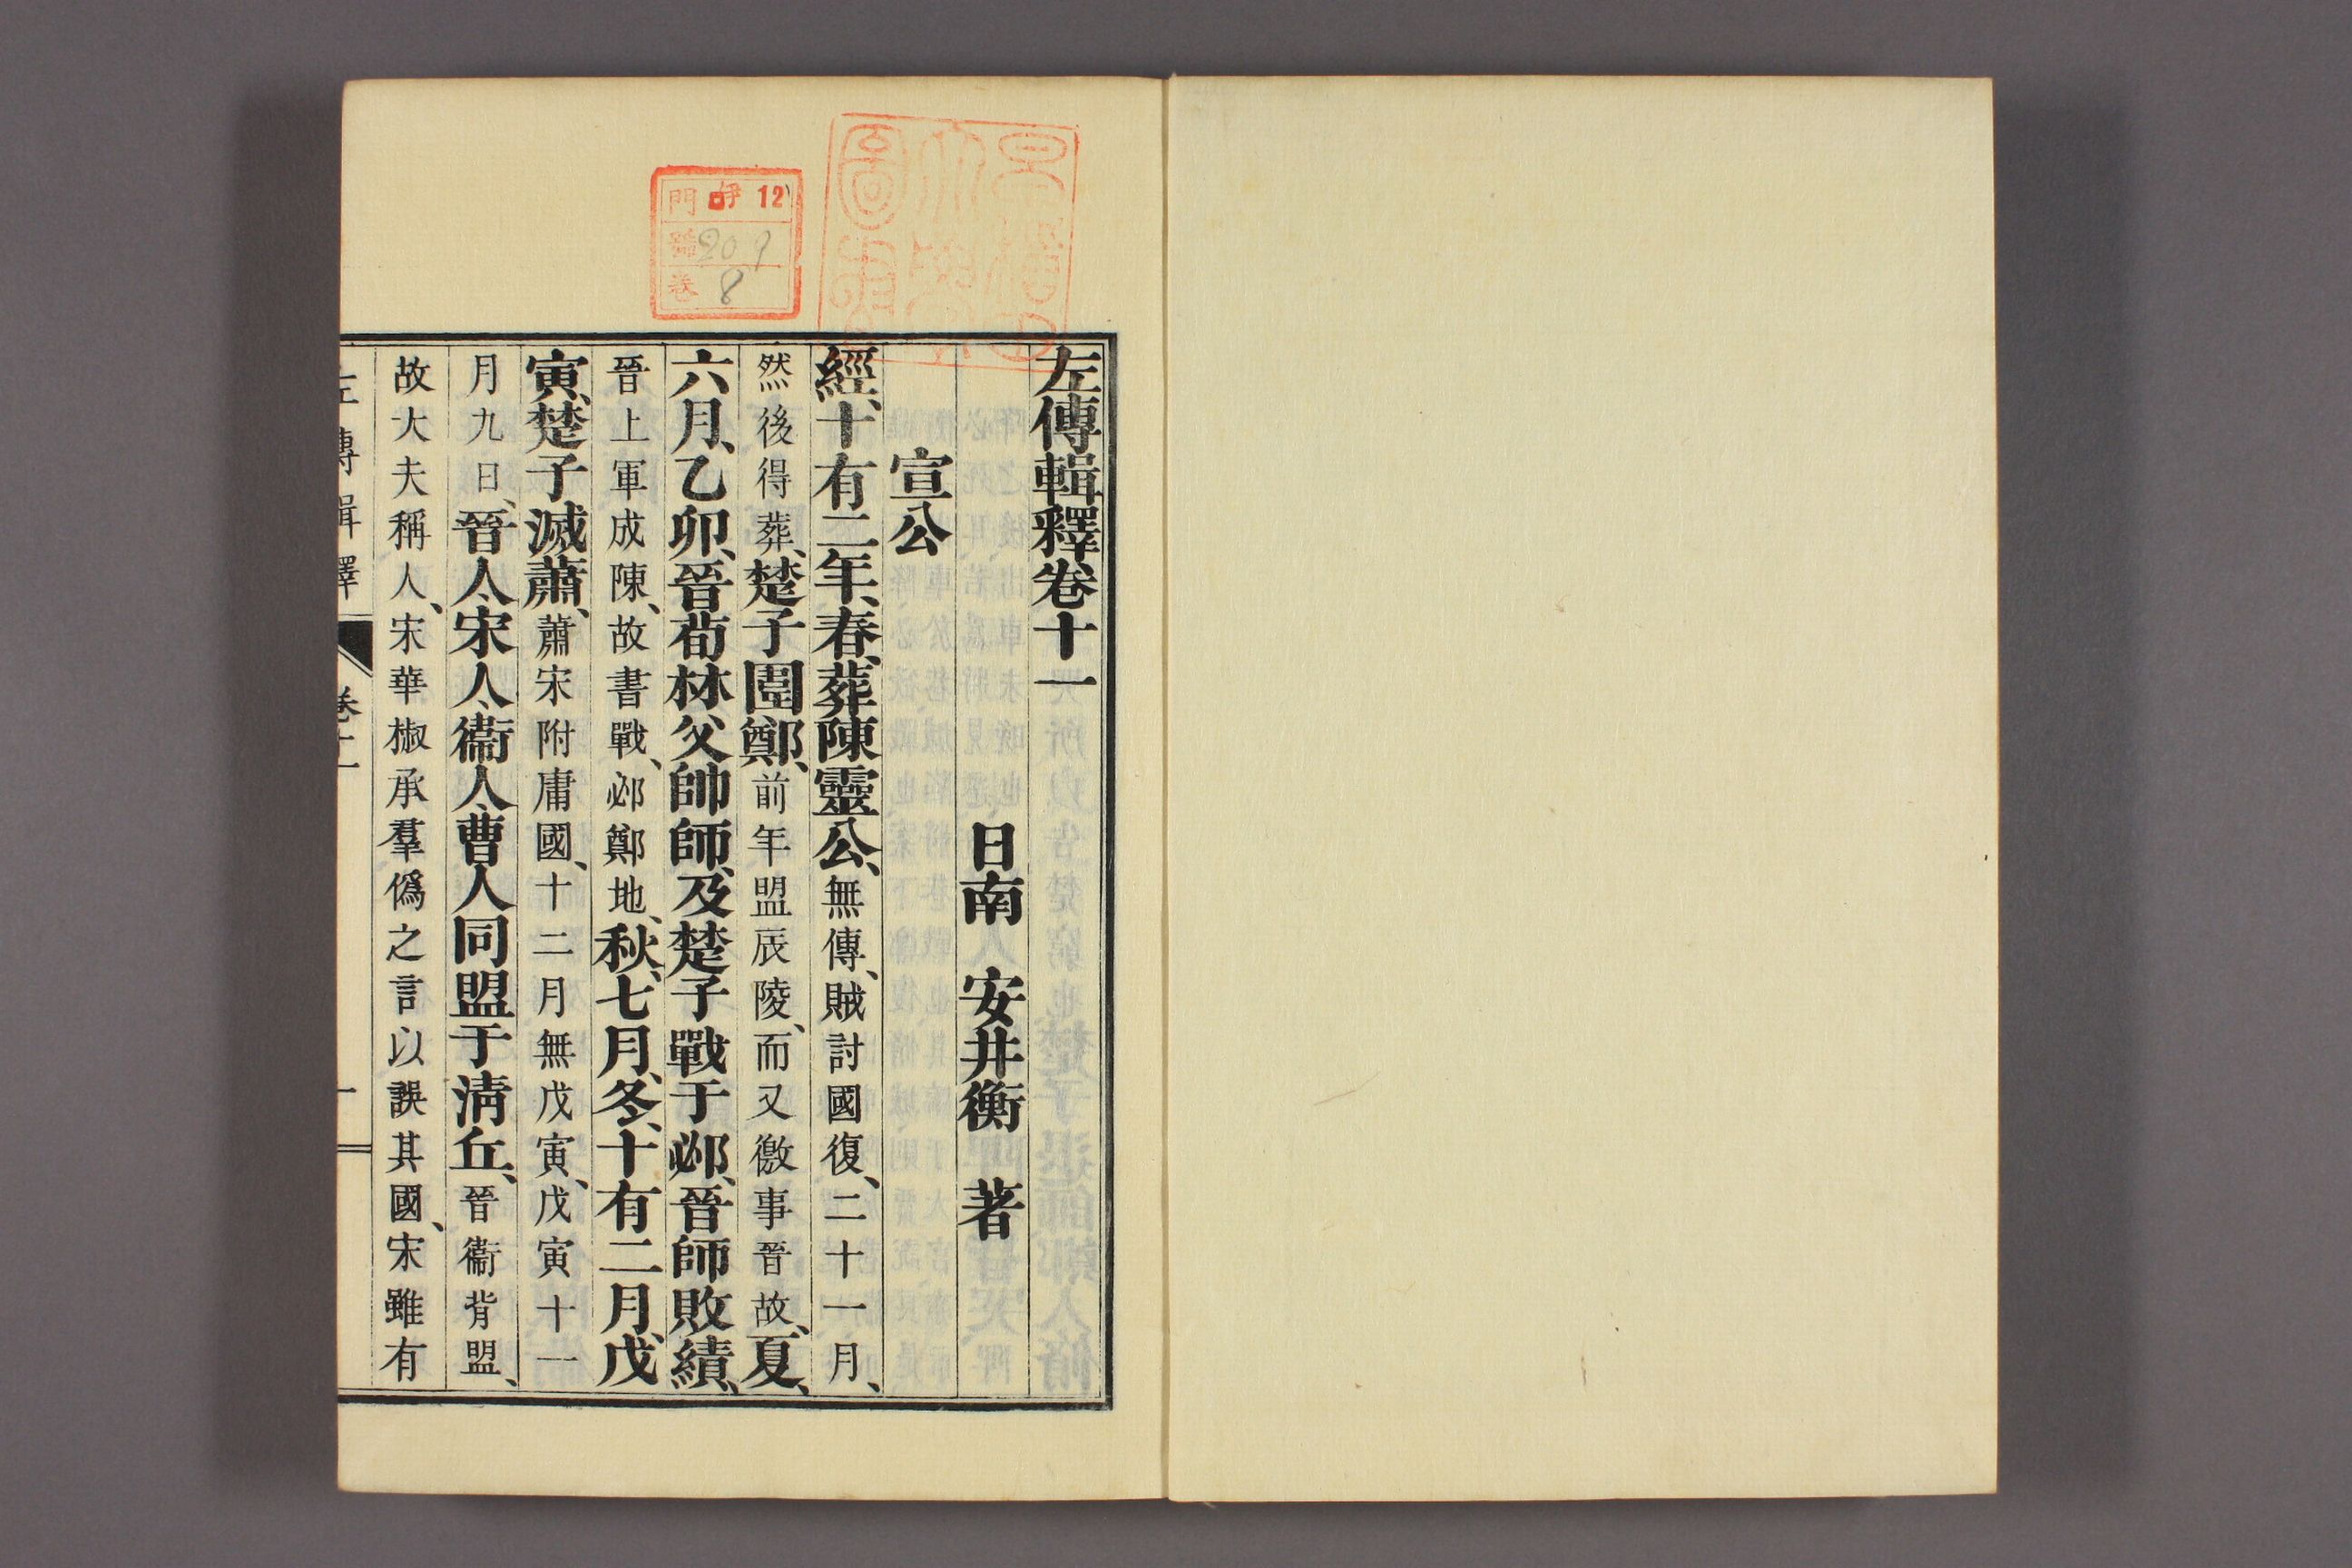 左傳輯釋卷十一
日南　安井衡　著
宣公
經、十有二年、春、葬陳靈公、無傳、賊討國復、二十一月、
然後得葬、楚子圍鄭、前年盟辰陵、而又徼事晉故、夏、
六月、乙卯、晉荀林父帥師、及楚子戰于邲、晉師敗績、
晉上軍成陳、故書戰、邲鄭地、秋、七月、冬、十有二月、戊
寅、楚子滅蕭、蕭宋附庸國、十二月無戊寅、戊寅十一
月九日、晉人、宋人、衞人、曹人同盟于清丘、晉衞背盟、
故大夫稱人、宋華椒承羣僞之言以誤其國、宋雖有
左傳輯釋　卷十一　一
門 伊 12
號 209
卷 8